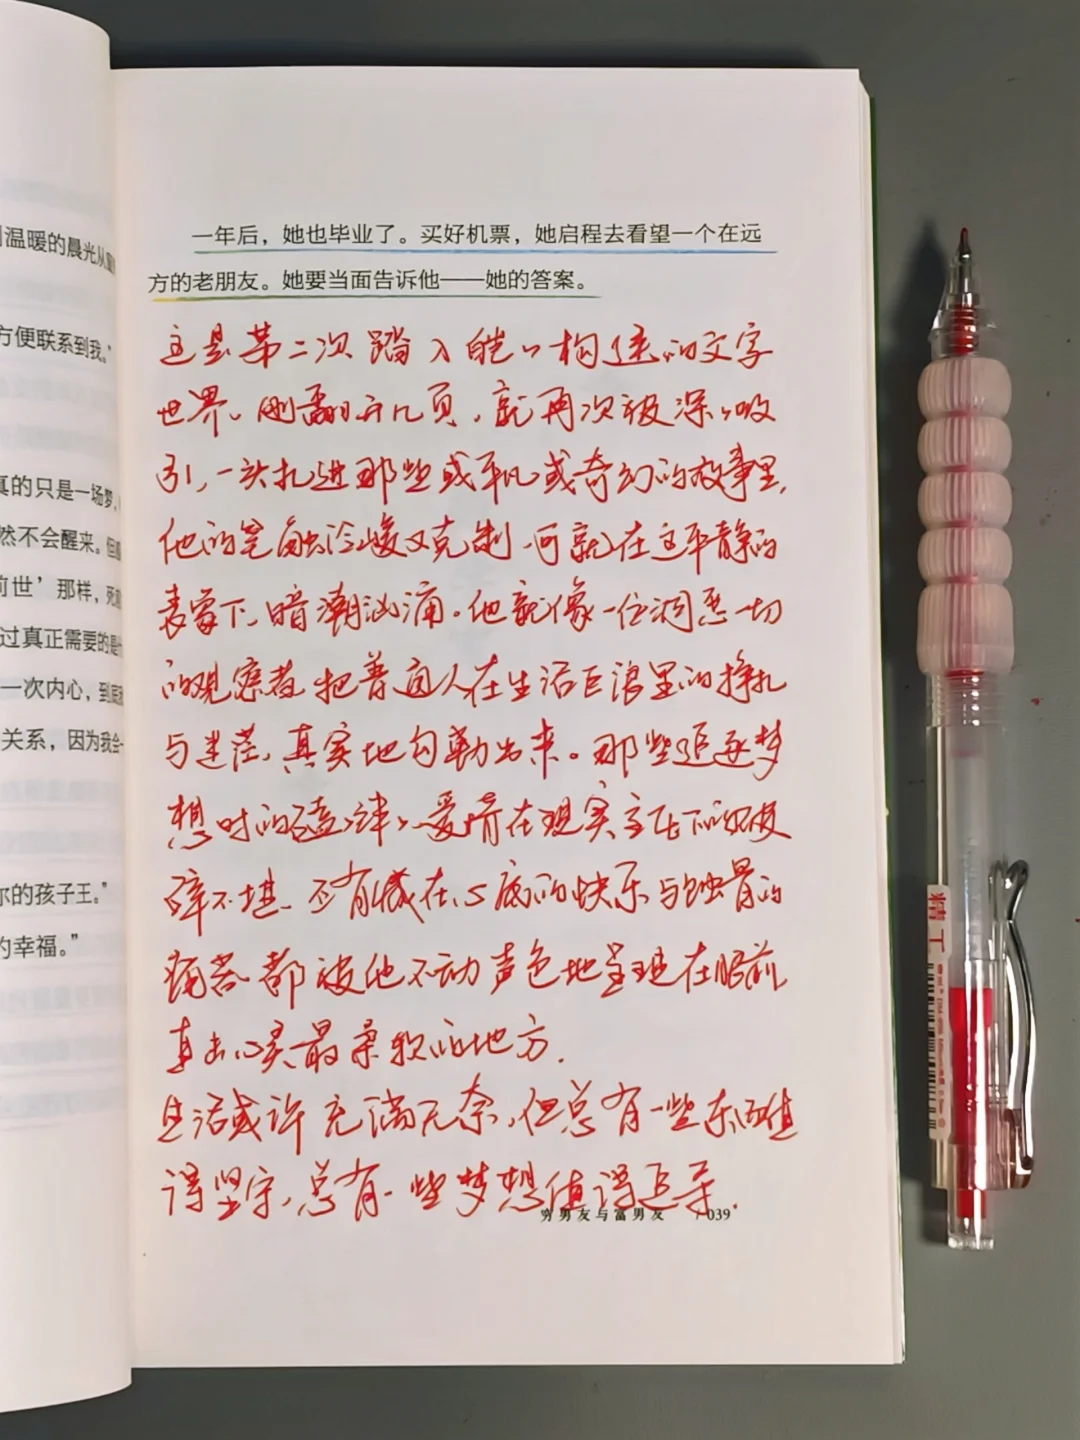 温暖的晨光从
方便联系到我。”
真的只是一场梦，
然不会醒来。但
前世’那样，死
过真正需要的是
一次内心，到
关系，因为我会
你的孩子王。”
的幸福。”
一年后，她也毕业了。买好机票，她启程去看望一个在远
方的老朋友。她要当面告诉他——她的答案。
这是第二次踏入皑皑构建的文字
世界。刚翻开几页，就再次被深深吸
引，一头扎进那些或平凡或奇幻的故事里，
他的笔触冷峻又克制，可就在这平静的
表象下，暗潮汹涌。他就像一位洞悉一切
的观察者，把普通人在生活巨浪里的挣扎
与迷茫，真实地勾勒出来。那些追逐梦
想时的磕磕绊绊，爱情在现实重压下的破
碎不堪，还有藏在心底的快乐与蚀骨的
痛苦，都被他不动声色地呈现在眼前，
直击心灵最柔软的地方.
生活或许充满无奈，但总有一些东西值
得坚守，总有一些梦想值得追寻.
穷男友与富男友 / 039
精工